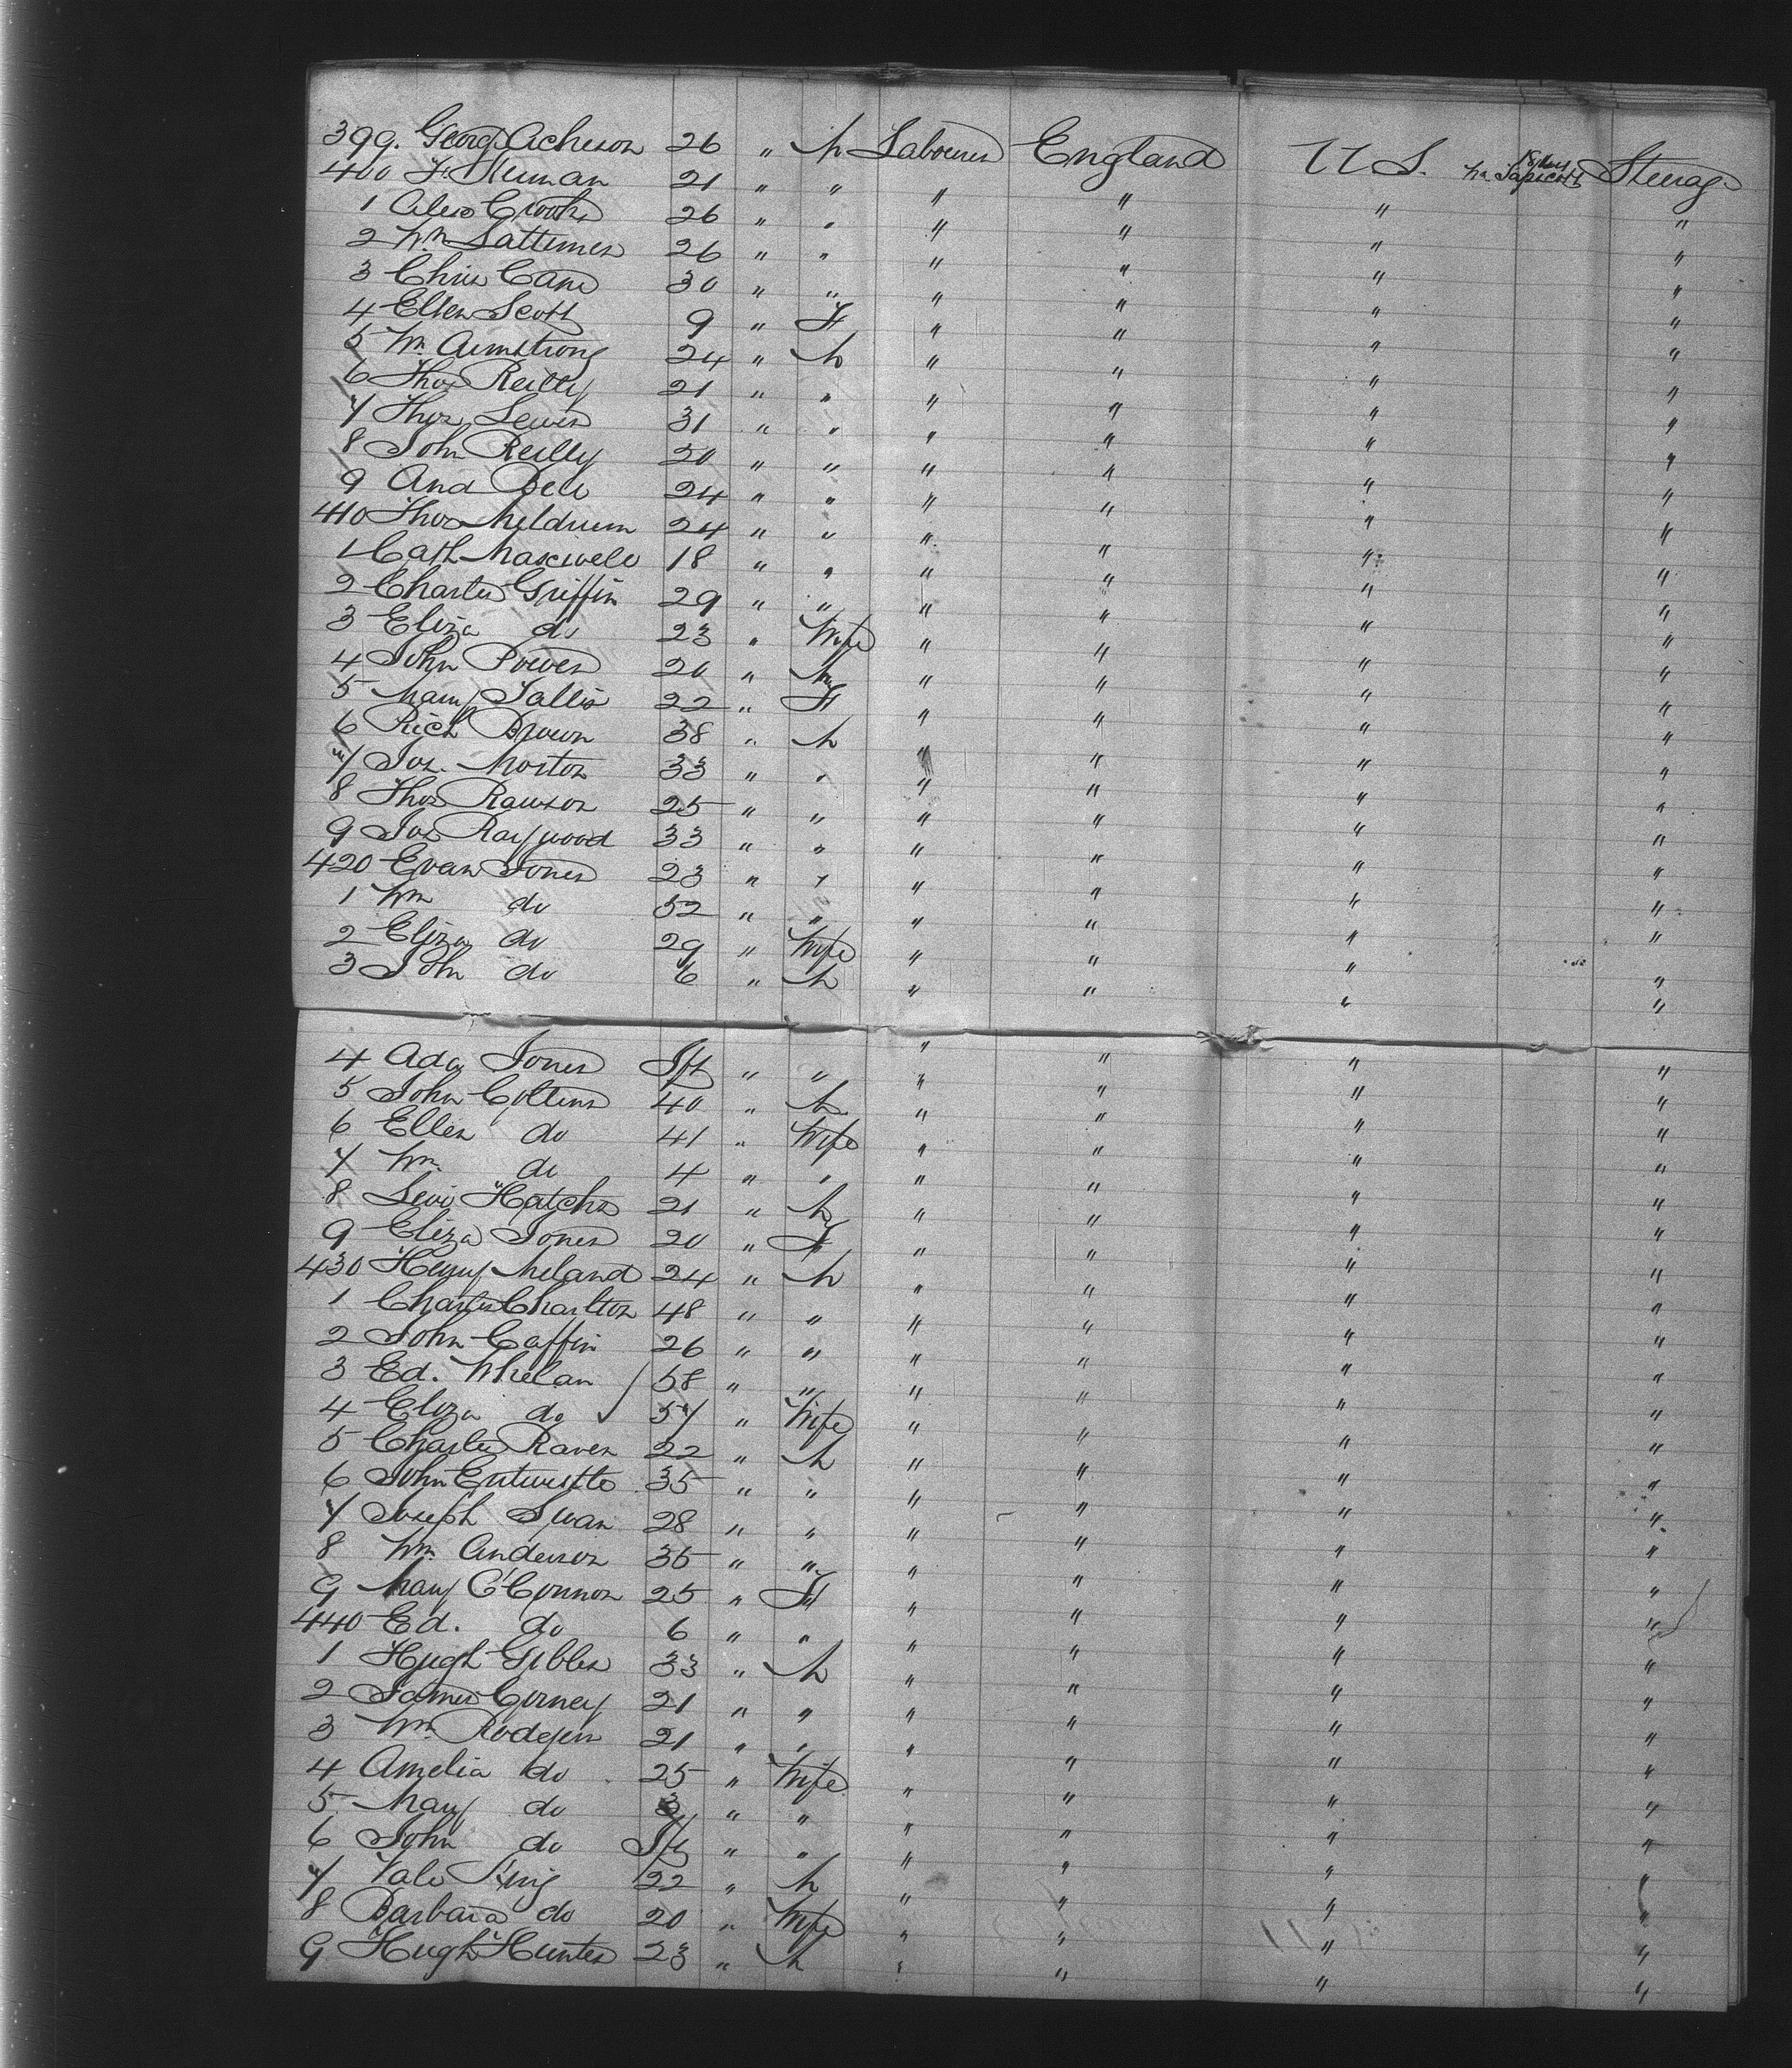 399. Georg Acheson 26 " M Labourer England U S. Steerag
400 F. Neuman 21 " " " " " "
1 Alex Crooks 26 " " " " " "
2 Wm Lattimer 26 " " " " " "
3 Chris Cane 30 " " " " " "
4 Ellen Scott 9 " F " " " "
5 Wm Armstrong 24 " M " " " "
6 Thos Reilly 21 " " " " " "
7 Thos Lewis 31 " " " " " "
8 John Reilly 20 " " " " " "
9 And Bell 24 " " " " " "
410 Thos Meldrum 24 " " " " " "
1 Cath Maxwell 18 " " " " " "
2 Charles Griffin 29 " " " " " "
3 Eliza do 23 " Wife " " " "
4 John Power 20 " M " " " "
5 Mary Tallis 22 " F " " " "
6 Rich Brown 38 " M " " " "
7 Jos. Morton 33 " " " " " "
8 Thos Rawson 25 " " " " " "
9 Jos Raywood 33 " " " " " "
420 Evan Jones 23 " " " " " "
1 Wm do 52 " " " " " "
2 Eliza do 29 " Wife " " " "
3 John do 6 " M " " " "
4 Ada Jones Ift " " " " " "
5 John Collins 40 " M " " " "
6 Ellen do 41 " Wife " " " "
7 Wm. do 4 " " " " " "
8 Levi Hatchs 21 " M " " " "
9 Eliza Jones 20 " F " " " "
430 Henry Meland 24 " M " " " "
1 Charles Charlton 48 " " " " " "
2 John Caffin 26 " " " " " "
3 Ed. Whelan 58 " " " " " "
4 Eliza do 57 " Wife " " " "
5 Charles Raven 22 " M " " " "
6 John Entwistle 35 " " " " " "
7 Joseph Swan 28 " " " " " "
8 Wm. Anderson 35 " " " " " "
9 Mary O'Connor 25 " F " " " "
440 Ed. do 6 " " " " " "
1 Hugh Gibbes 33 " M " " " "
2 James Corney 21 " " " " " "
3 Wm Rodgers 21 " " " " " "
4 Amelia do 25 " Wife " " " "
5 Mary do 3 " " " " " "
6 John do Ift " " " " " "
7 Vale King 22 " M " " " "
8 Barbara do 20 " Wife " " " "
9 Hugh Hunter 23 " M " " " "